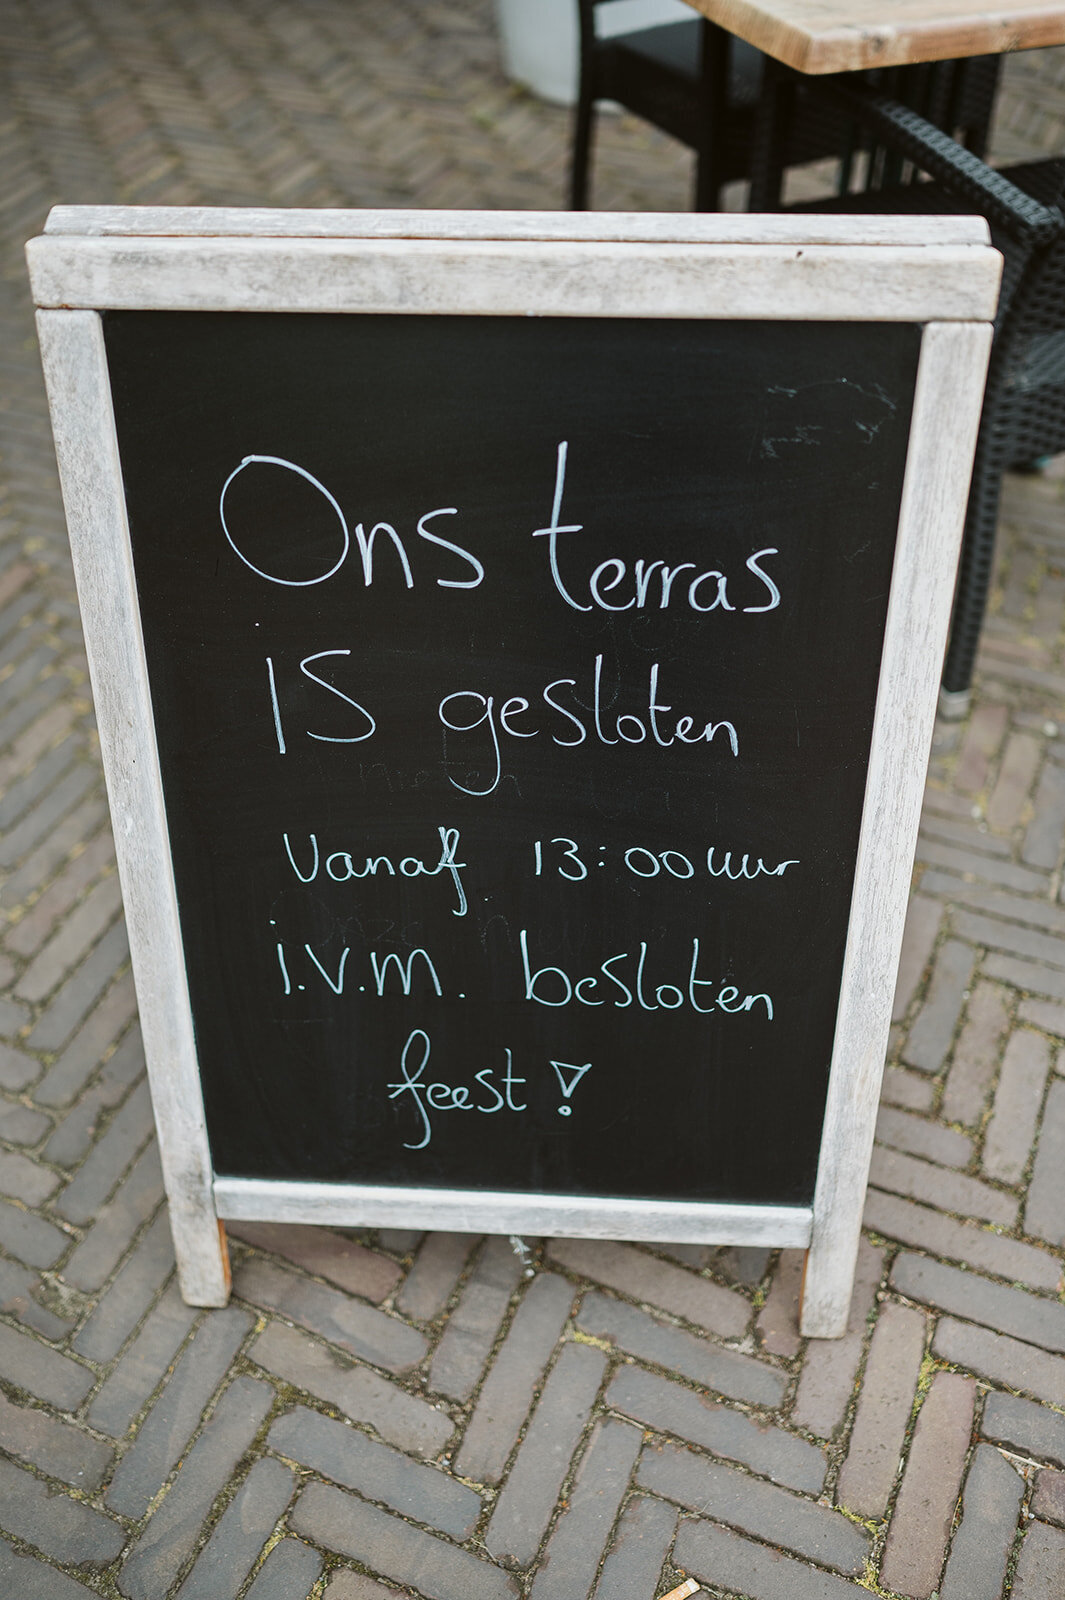 Ons terras
is gesloten
Vanaf 13:00 uur
i.v.m. besloten
feest!